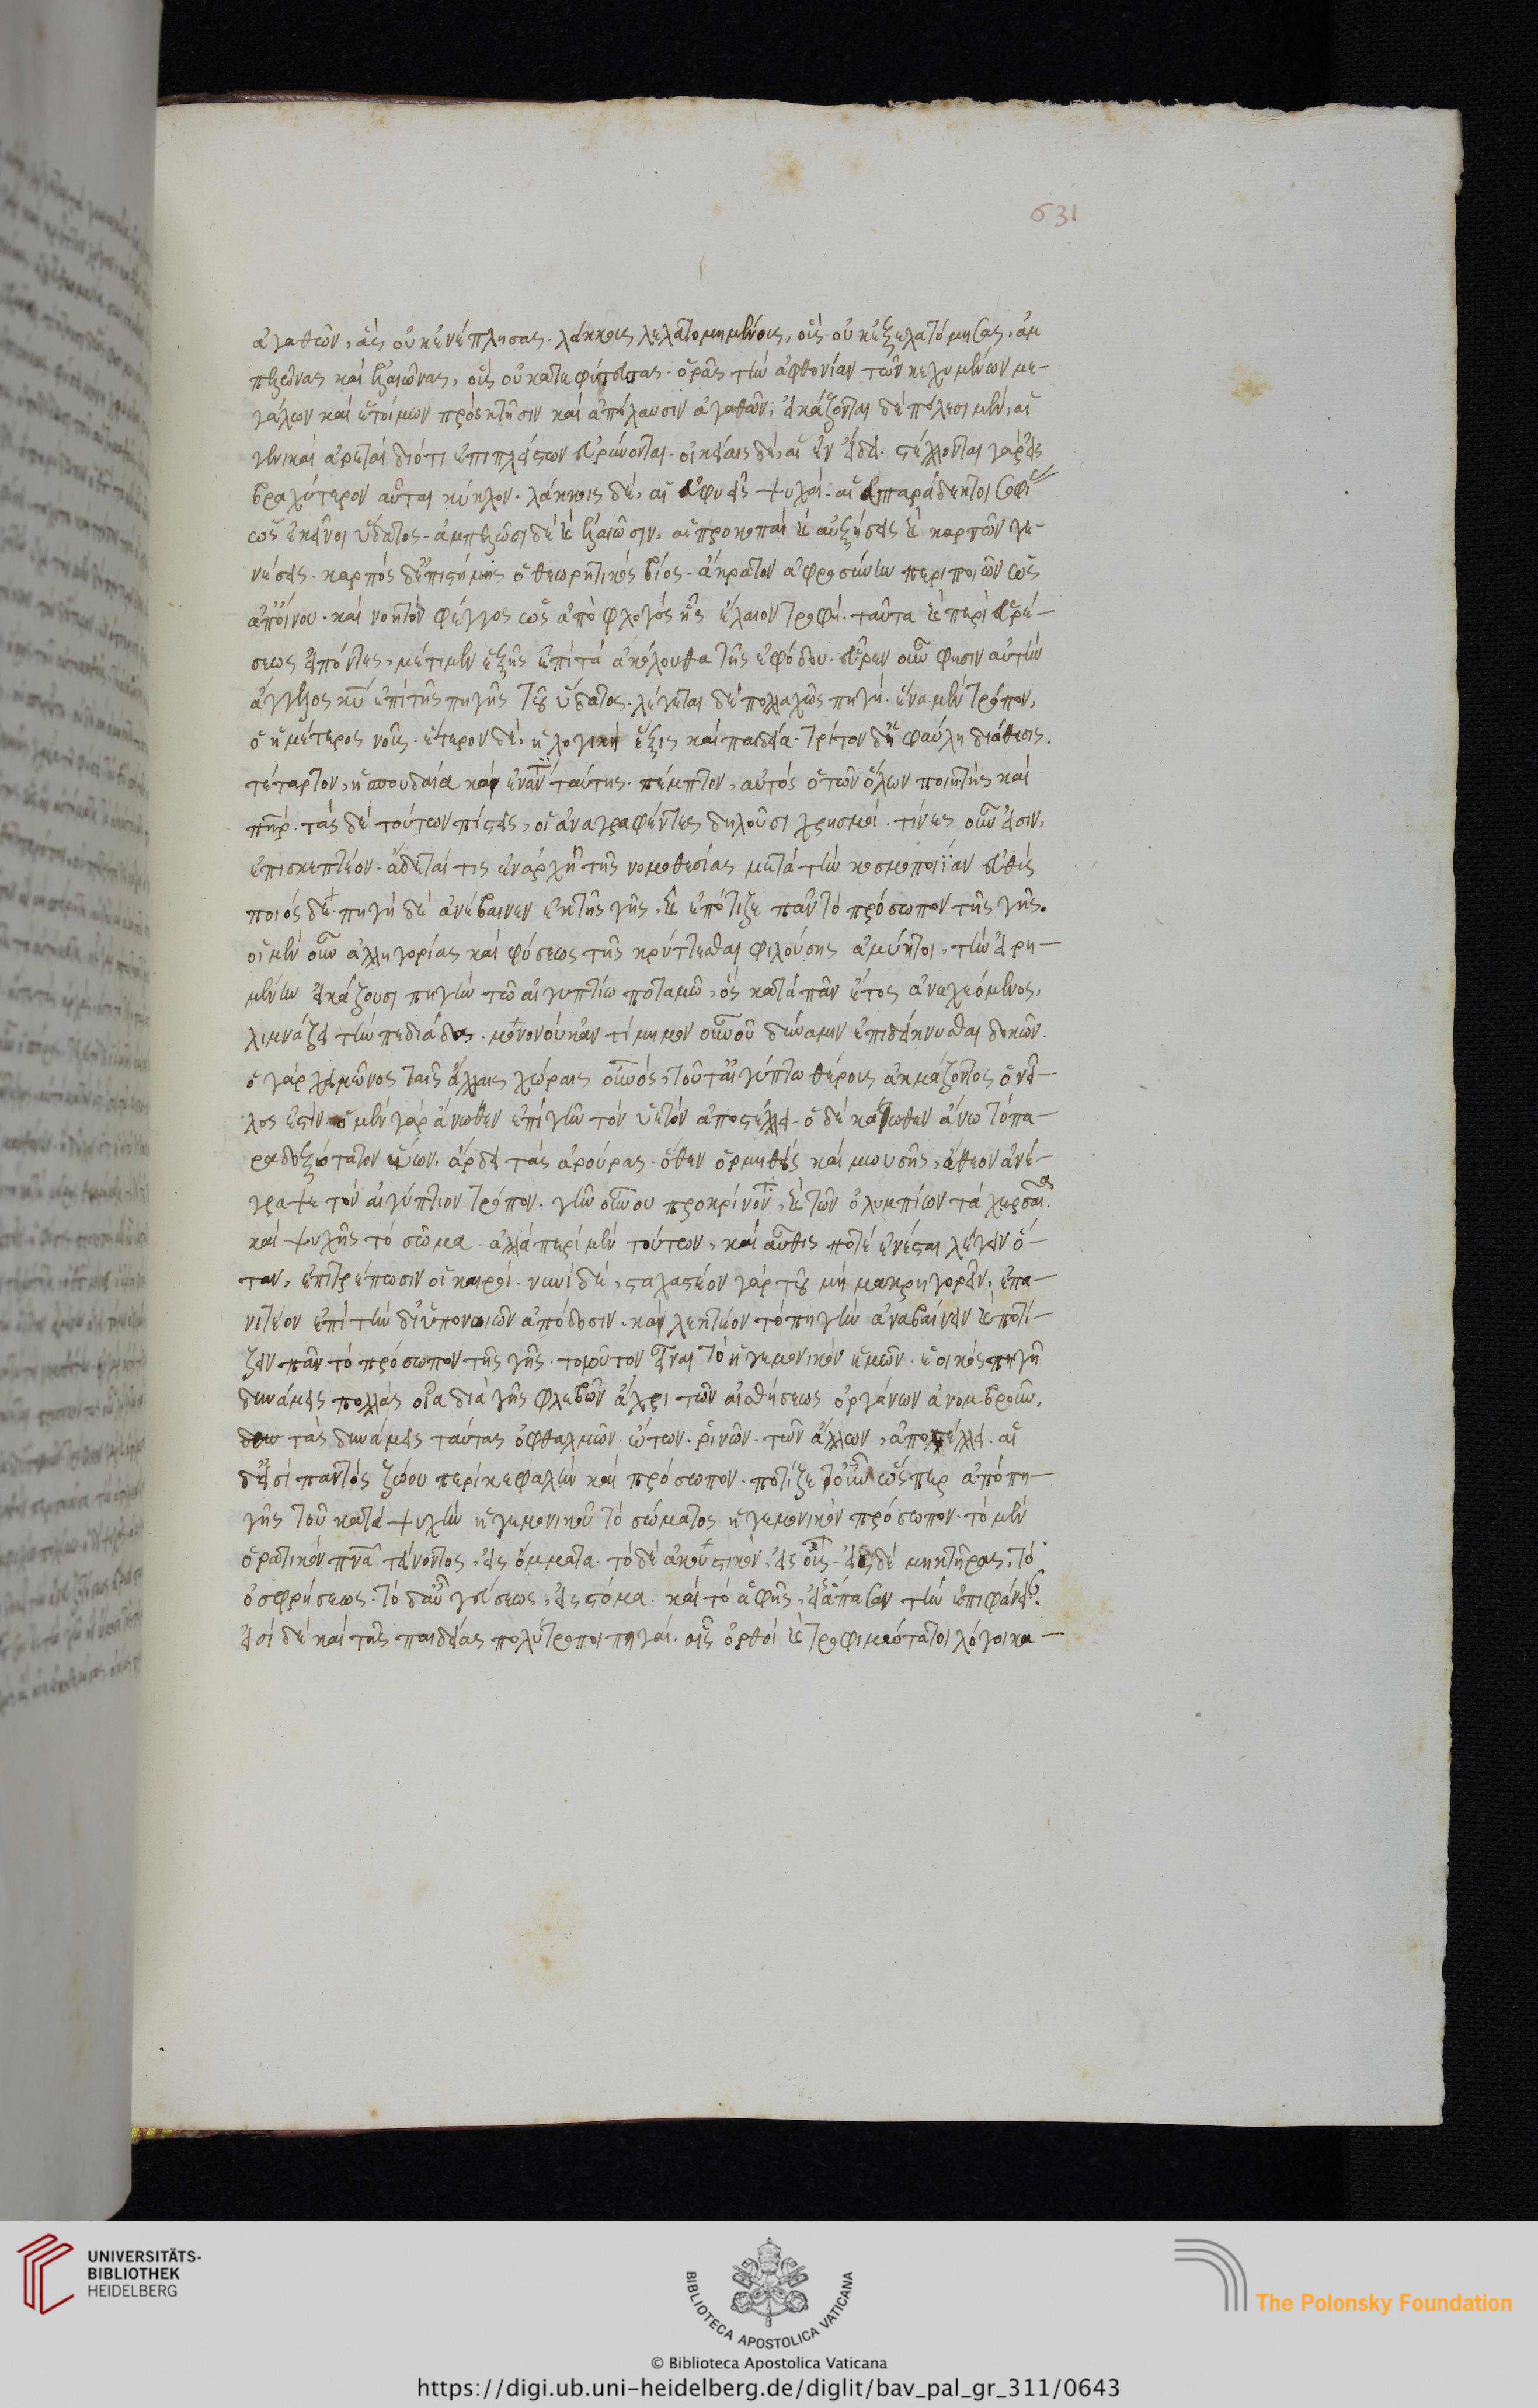 631
ἀγαθῶν, ἃς οὐκ ἐνέπλησας. λάκκοις λελατομημένοις, οἷς οὐκ ἐξελατόμησας, ἀμ
πελῶνας καὶ ἐλαιῶνας, οἷς οὐ κατεφύτευσας. ὁρᾶς τὴν ἀφθονίαν τῶν κεχυμένων με-
γάλων καὶ ἑτοίμων πρὸς κτῆσιν καὶ ἀπόλαυσιν ἀγαθῶν; εἰκάζονται δὲ πόλεσι μὲν, αἱ
γενικαὶ ἀρεταὶ διότι ἐπιπλεῖστον εὐρύνονται. οἰκίαις δὲ, αἱ ἐν εἴδει. στέλλονται γὰρ εἰς
βραχύτερον αὗται κύκλον. λάκκοις δὲ, αἱ εὐφυεῖς ψυχαὶ. αἱ εὐπαράδεκτοι σοφί
ὡς ἐκεῖνοι ὕδατος. ἀμπελῶσι δὲ καὶ ἐλαιῶσιν, αἱ προκοπαὶ καὶ αὐξήσεις καὶ καρπῶν γε-
νέσεις. καρπὸς δ' ἐπιστήμης ὁ θεωρητικὸς βίος. ἄκρατον ἀφροσύνην περιποιῶν ὡς
ἀπ' οἴνου. καὶ νοητὸν φέγγος ὡς ἀπὸ φλογὸς ἧς ἔλαιον τροφή. ταῦτα καὶ περὶ εὑρέ-
σεως εἰπόντες, μέτιμεν ἑξῆς ἐπὶ τὰ ἀκόλουθα τῆς ἐφόδου. εὗρεν οὖν φησιν αὐτὴν
ἄγγελος κυ ἐπὶ τῆς πηγῆς τοῦ ὕδατος. λέγεται δὲ πολλαχῶς πηγή. ἕνα μὲν τρόπον,
ὁ ἡμέτερος νοῦς. ἕτερον δὲ, ἡ λογικὴ ἕξις καὶ παιδεία. τρίτον δ' ἡ φαύλη διάθεσις.
τέταρτον, ἡ σπουδαία καὶ ἐναντ ταύτης. πέμπτον, αὐτὸς ὁ τῶν ὅλων ποιητὴς καὶ
πηρ. τὰς δὲ τούτων πίστεις, οἱ ἀναγραφέντες δηλοῦσι χρησμοί. τίνες οὖν εἰσιν,
ἐπισκεπτέον. ᾄδεταί τις ἐν ἀρχῇ τῆς νομοθεσίας μετὰ τὴν κοσμοποιΐαν εὐθὺς
ποιὸς δε. πηγὴ δὲ ἀνέβαινεν ἐκ τῆς γῆς, καὶ ἐπότιζε πᾶν τὸ πρόσωπον τῆς γῆς.
οἱ μὲν οὖν ἀλληγορίας καὶ φύσεως τῆς κρύπτεσθαι φιλούσης ἀμύητοι, τὴν εἰρη-
μένην εἰκάζουσι πηγὴν τῷ αἰγυπτίῳ ποταμῷ, ὃς κατὰ πᾶν ἔτος ἀναχεόμενος,
λιμνάζει τὴν πεδιάδα. μονονουκαν τίμημον οὐνοῦ δύναμιν ἐπιδείκνυσθαι δοκῶν.
ὁ γὰρ χειμῶνος ταῖς ἄλλαις χώραις οὐνός, τοῦτ' αἰγύπτω θέρους ἀκμάζοντος ὁ νεῖ-
λος ἐστίν. ὁ μὲν γὰρ ἄνωθεν ἐπὶ γῆν τὸν ὑετὸν ἀποστέλλει. ὁ δὲ κάτωθεν ἄνω τὸ πα-
ραδοξότατον ὕων, ἄρδει τὰς ἀρούρας. ὅθεν ὁρμηθεὶς καὶ μωυσῆς, ἄθεον ἀνέ-
γραψε τὸν αἰγύπτιον τρόπον. γῆν οὐνου προκρίνον, καὶ τῶν ὀλυμπίων τὰ χερσαῖα.
καὶ ψυχῆς τὸ σῶμα. ἀλλὰ περὶ μὲν τούτων, καὶ αὖθις ποτὲ ἐνέσται λέγειν ὅ-
ταν, ἐπιτρέπωσιν οἱ καιροί. νυνὶ δὲ, στοχαστέον γὰρ τοῦ μὴ μακρηγορεῖν, ἐπα-
νιτέον ἐπὶ τὴν δι' ὑπονοιῶν ἀπόδοσιν. καὶ λεκτέον τὸ πηγὴν ἀναβαίνειν καὶ ποτί-
ζειν πᾶν τὸ πρόσωπον τῆς γῆς. τοιοῦτον εἶναι τὸ ἡγεμονικὸν ἡμῶν. ἐοικὸς πηγῇ
δυνάμεις πολλὰς οἷα διὰ γῆς φλεβῶν ἄχρι τῶν αἰσθήσεως ὀργάνων ἀνομβροῦν,
τὰς δυνάμεις ταύτας ὀφθαλμῶν. ὤτων. ῥινῶν. τῶν ἄλλων, ἀποστέλλει. αἱ
δ' εἰσὶ παντὸς ζώου περὶ κεφαλὴν καὶ πρόσωπον. ποτίζε τοῦν ὥσπερ ἀπὸ πη-
γῆς τοῦ κατὰ ψυχὴν ἡγεμονικοῦ τὸ σώματος ἡγεμονικὸν πρόσωπον. τὸ μὲν
ὁρατικὸν πνα τείνοντος, εἰς ὄμματα. τὸ δὲ ἀκουστικὸν, εἰς οὖς. εἰς δὲ μηκτῆρας, τὸ
ὀσφρήσεως. τὸ δ' αὖ γεύσεως, εἰς στόμα. καὶ τὸ ἁφῆς, εἰς ἅπασαν τὴν ἐπιφάνει.
εἰσὶ δὲ καὶ τῆς παιδείας πολύτροποι πηγαί. αἷς ὀρθοὶ καὶ τροφιμώτατοι λόγοι κα-
UNIVERSITÄTS-
BIBLIOTHEK
HEIDELBERG
BIBLIOTECA APOSTOLICA VATICANA
The Polonsky Foundation
© Biblioteca Apostolica Vaticana
https://digi.ub.uni-heidelberg.de/diglit/bav_pal_gr_311/0643